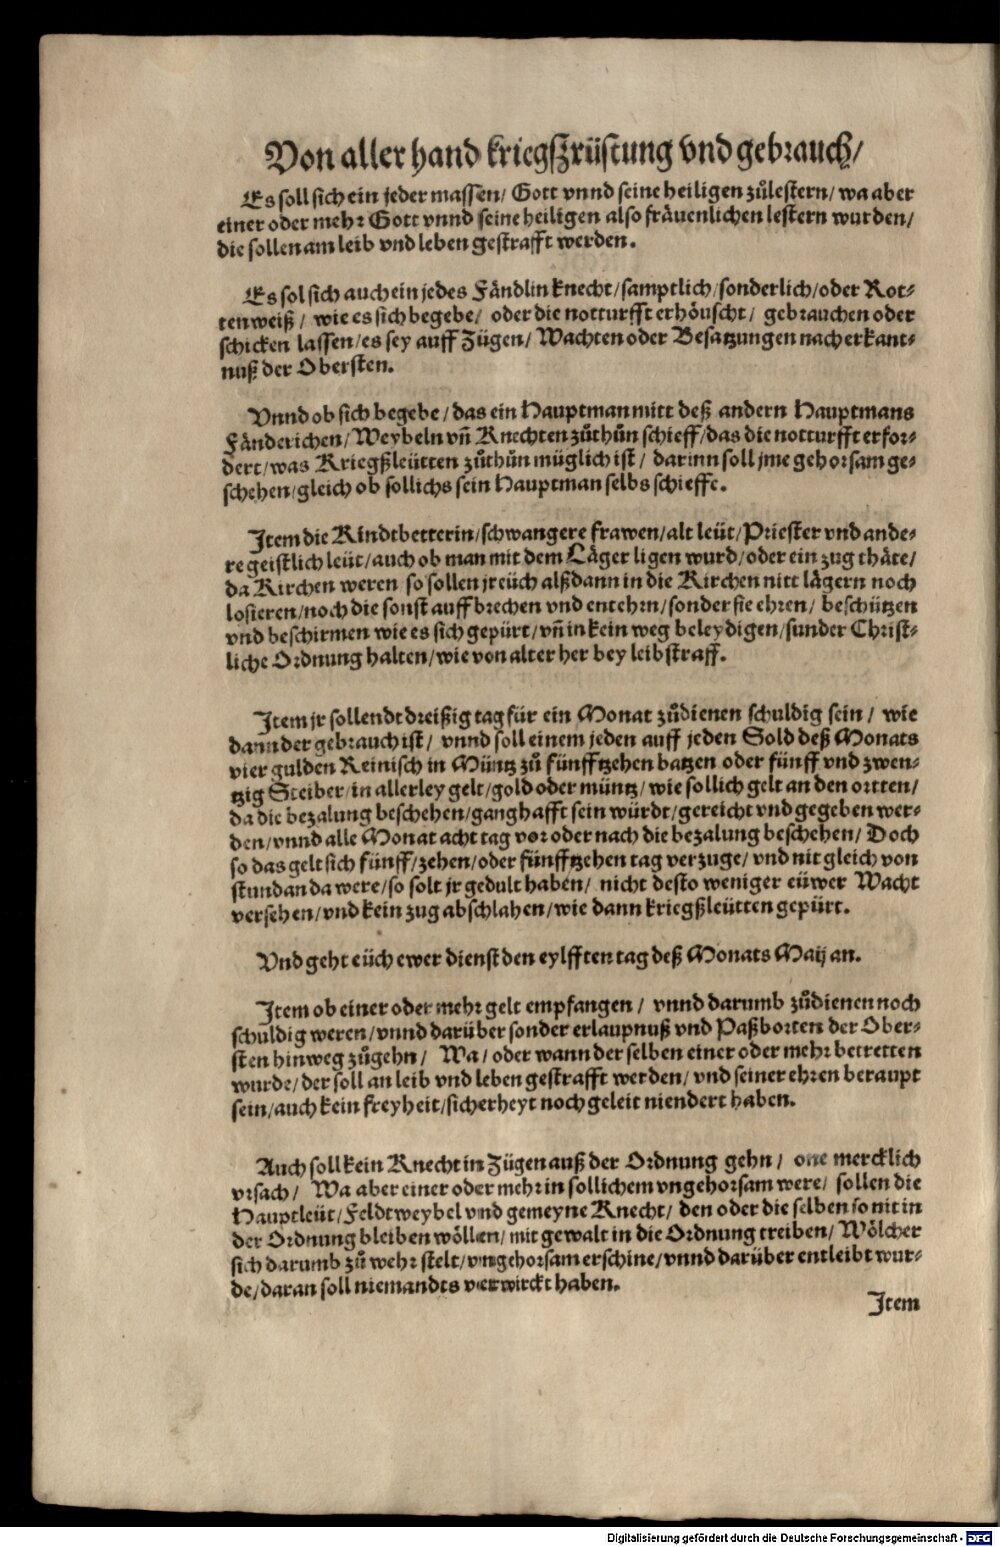 Von aller hand kriegßrüstung vnd gebrauch/
Es soll sich ein jeder massen/ Gott vnnd seine heiligen zůlestern/ wa aber
einer oder mehr Gott vnnd seine heiligen also fräuenlichen lestern wurden/
die sollen am leib vnd leben gestrafft werden.
Es sol sich auch ein jedes Fändlin knecht/samptlich/sonderlich/oder Rot⸗
ten weiß/ wie es sich begebe/ oder die notturfft erhöuscht/ gebrauchen oder
schicken lassen/es sey auff Zügen/ Wachten oder Besatzungen nach erkant⸗
nuß der Obersten.
Vnnd ob sich begebe/das ein Hauptman mitt deß andern Hauptmans
Fänderichen/Weybeln vñ Knechten zůthůn schieff/das die notturfft erfor⸗
dert/was Kriegßleütten zůthůn müglich ist/ darinn soll jme gehorsam ge⸗
schehen/gleich ob sollichs sein Hauptman selbs schieffe.
Item die Kindtbetterin/schwangere frawen/alt leüt/Priester vnd ande⸗
re geistlich leüt/auch ob man mit dem Läger ligen wurd/oder ein zug thäte/
da Kirchen weren so sollen jr eüch alßdann in die Kirchen nitt lägern noch
losieren/noch die sonst auffbrechen vnd entehrn/sonder sie ehren/ beschützen
vnd beschirmen wie es sich gepürt/vñ in kein weg beleydigen/sunder Christ⸗
liche Ordnung halten/wie von alter her bey leibstraff.
Item jr sollendt dreißig tag für ein Monat zůdienen schuldig sein/ wie
dann der gebrauch ist/ vnnd soll einem jeden auff jeden Sold deß Monats
vier gulden Reinisch in Müntz zů fünfftzehen batzen oder fünff vnd zwen⸗
tzig Steiber/in allerley gelt/gold oder müntz/ wie sollich gelt an den ortten/
da die bezalung beschehen/ganghafft sein würdt/gereicht vnd gegeben wer⸗
den/vnnd alle Monat acht tag vor oder nach die bezalung beschehen/ Doch
so das gelt sich fünff/zehen/oder fünfftzehen tag verzuge/ vnd nit gleich von
stundan da were/so solt jr gedult haben/ nicht desto weniger eüwer Wacht
versehen/vnd kein zug abschlahen/wie dann kriegßleütten gepürt.
Vnd geht eüch ewer dienst den eylfften tag deß Monats Maij an.
Item ob einer oder mehr gelt empfangen/ vnnd darumb zůdienen noch
schuldig weren/vnnd darüber sonder erlaupnuß vnd Paßborten der Ober⸗
sten hinweg zůgehn/ Wa/ oder wann der selben einer oder mehr betretten
wurde/der soll an leib vnd leben gestrafft werden/ vnd seiner ehren beraupt
sein/auch kein freyheit/sicherheyt noch geleit niendert haben.
Auch soll kein Knecht in Zügen auß der Ordnung gehn/ one mercklich
vrsach/ Wa aber einer oder mehr in sollichem vngehorsam were/ sollen die
Hauptleüt/Feldtweybel vnd gemeyne Knecht/ den oder die selben so nit in
der Ordnung bleiben wöllen/ mit gewalt in die Ordnung treiben/ Wölcher
sich darumb zů wehr stelt/vngehorsam erschine/vnnd darüber entleibt wur⸗
de/daran soll niemandts verwirckt haben.
Item
Digitalisierung gefördert durch die Deutsche Forschungsgemeinschaft - DFG